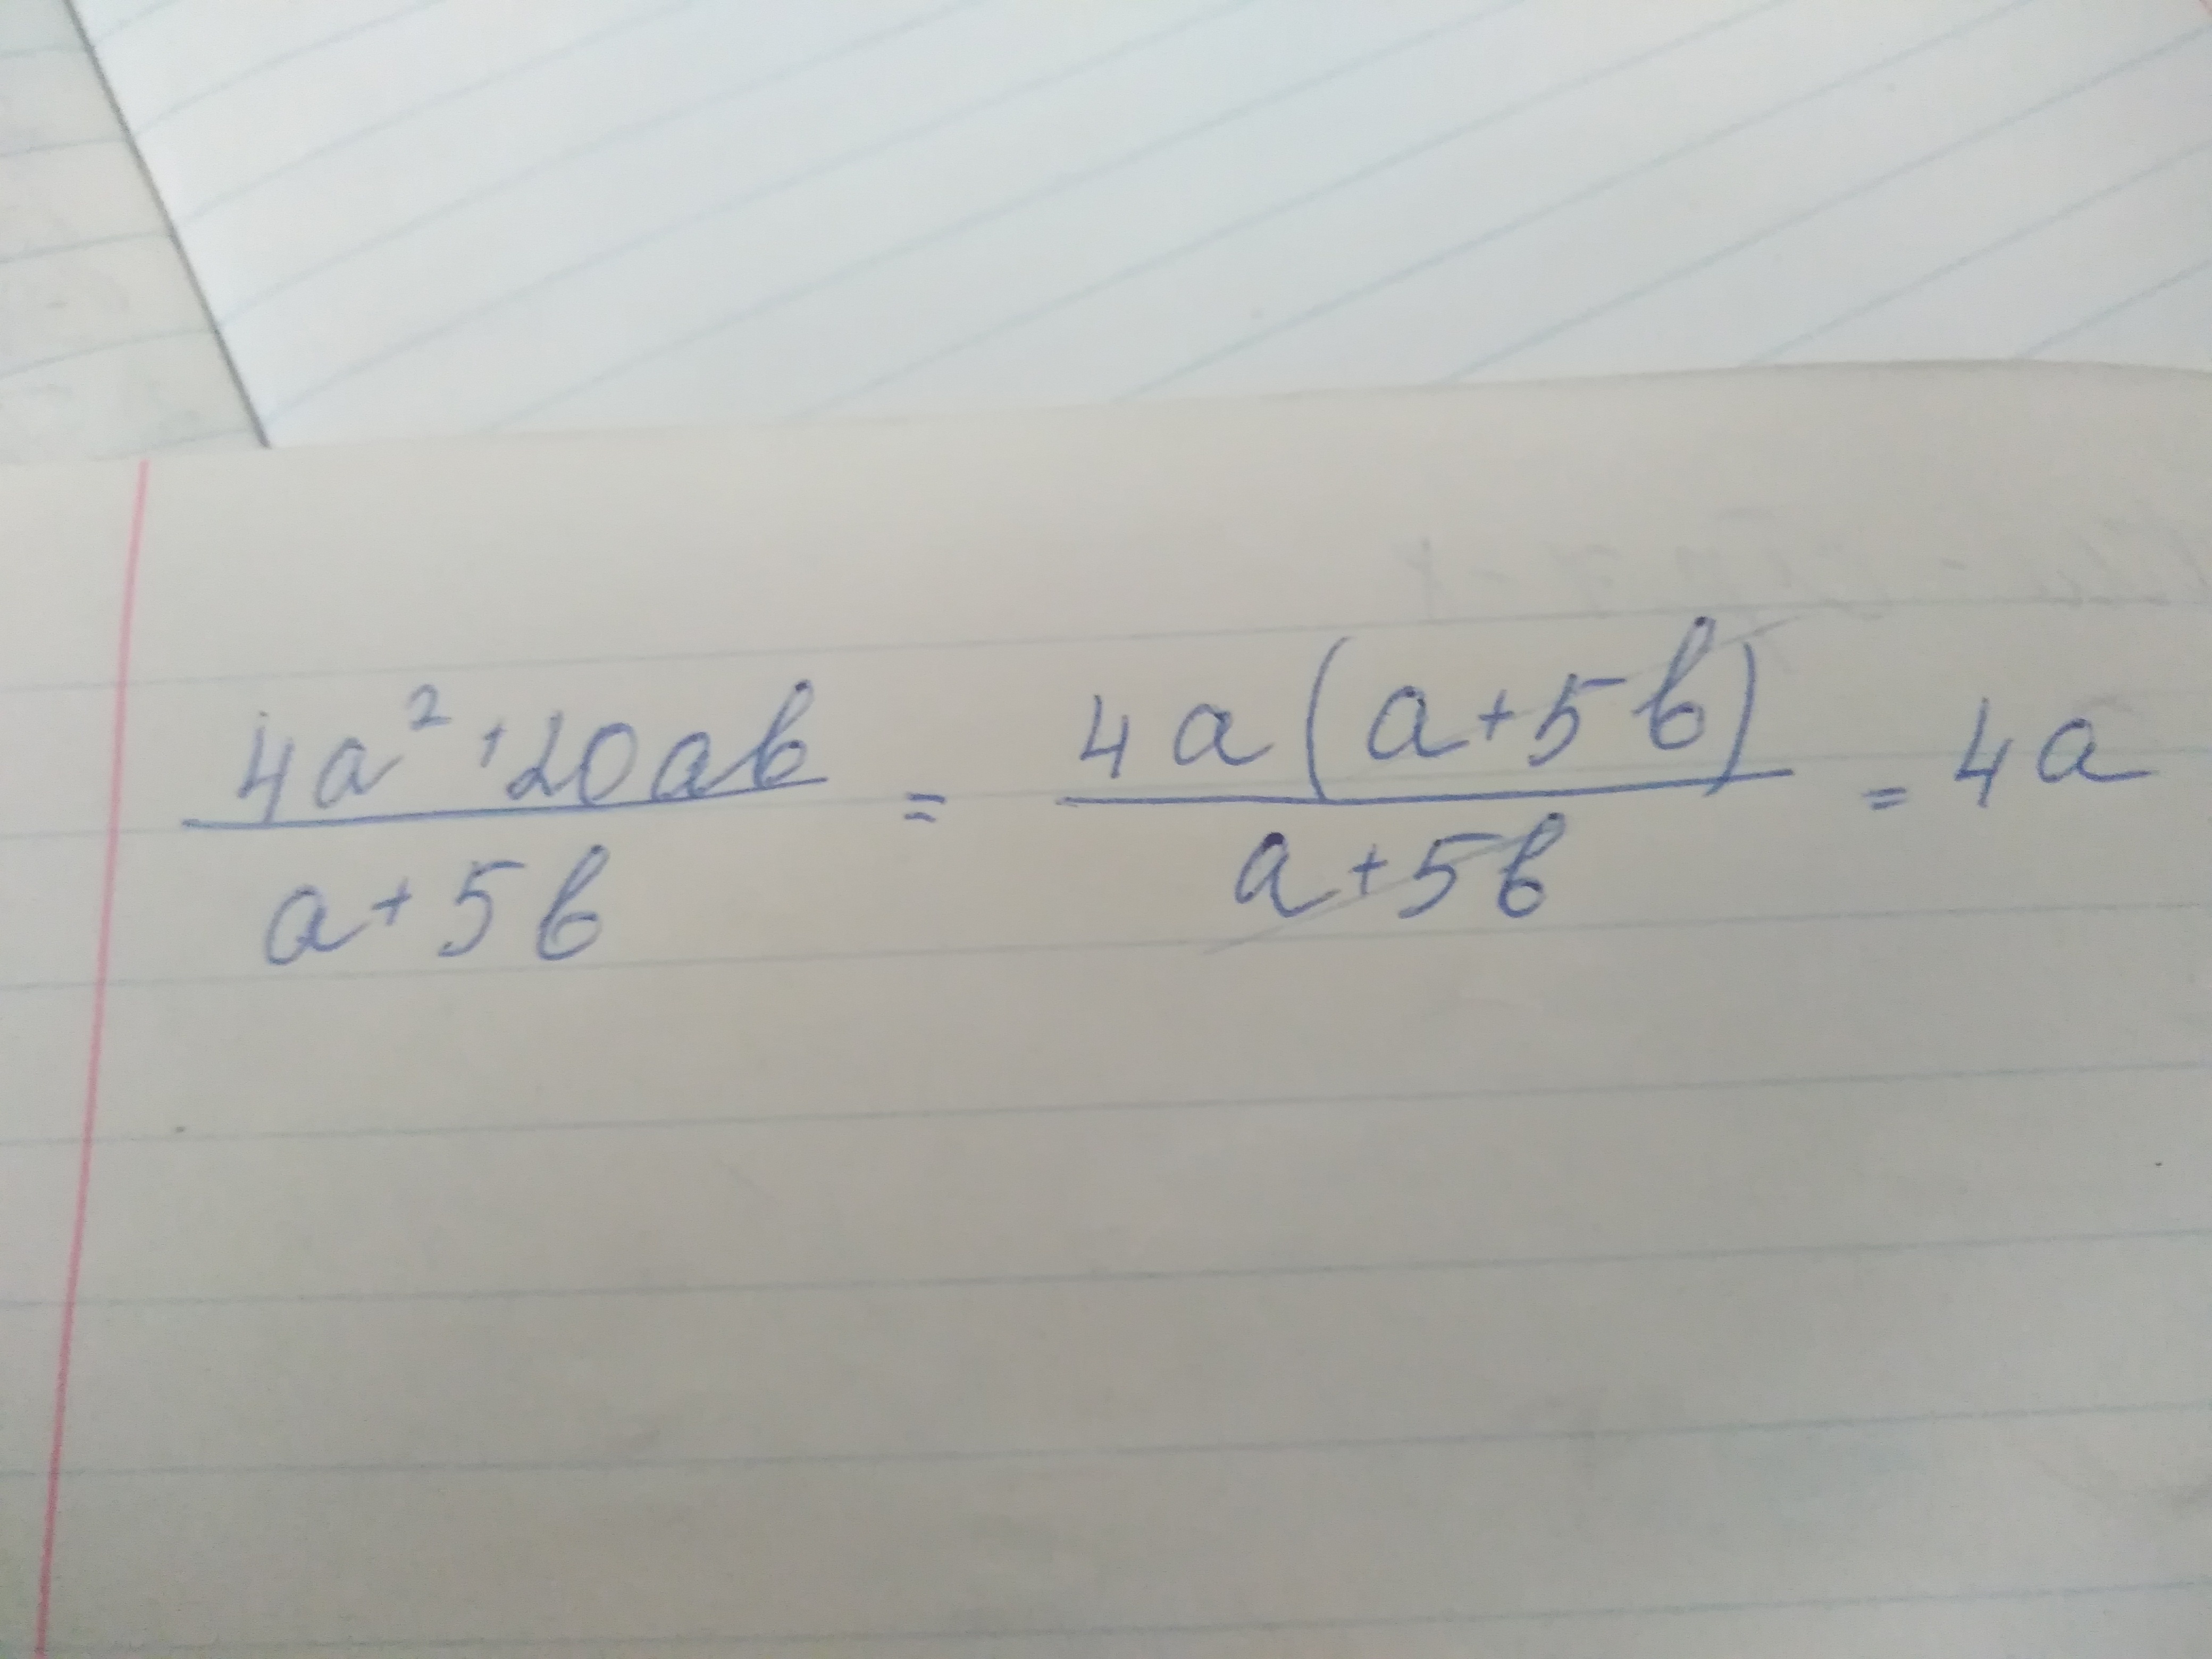 (4a² + 20ab)/(a + 5b) = (4a(a + 5b))/(a + 5b) = 4a